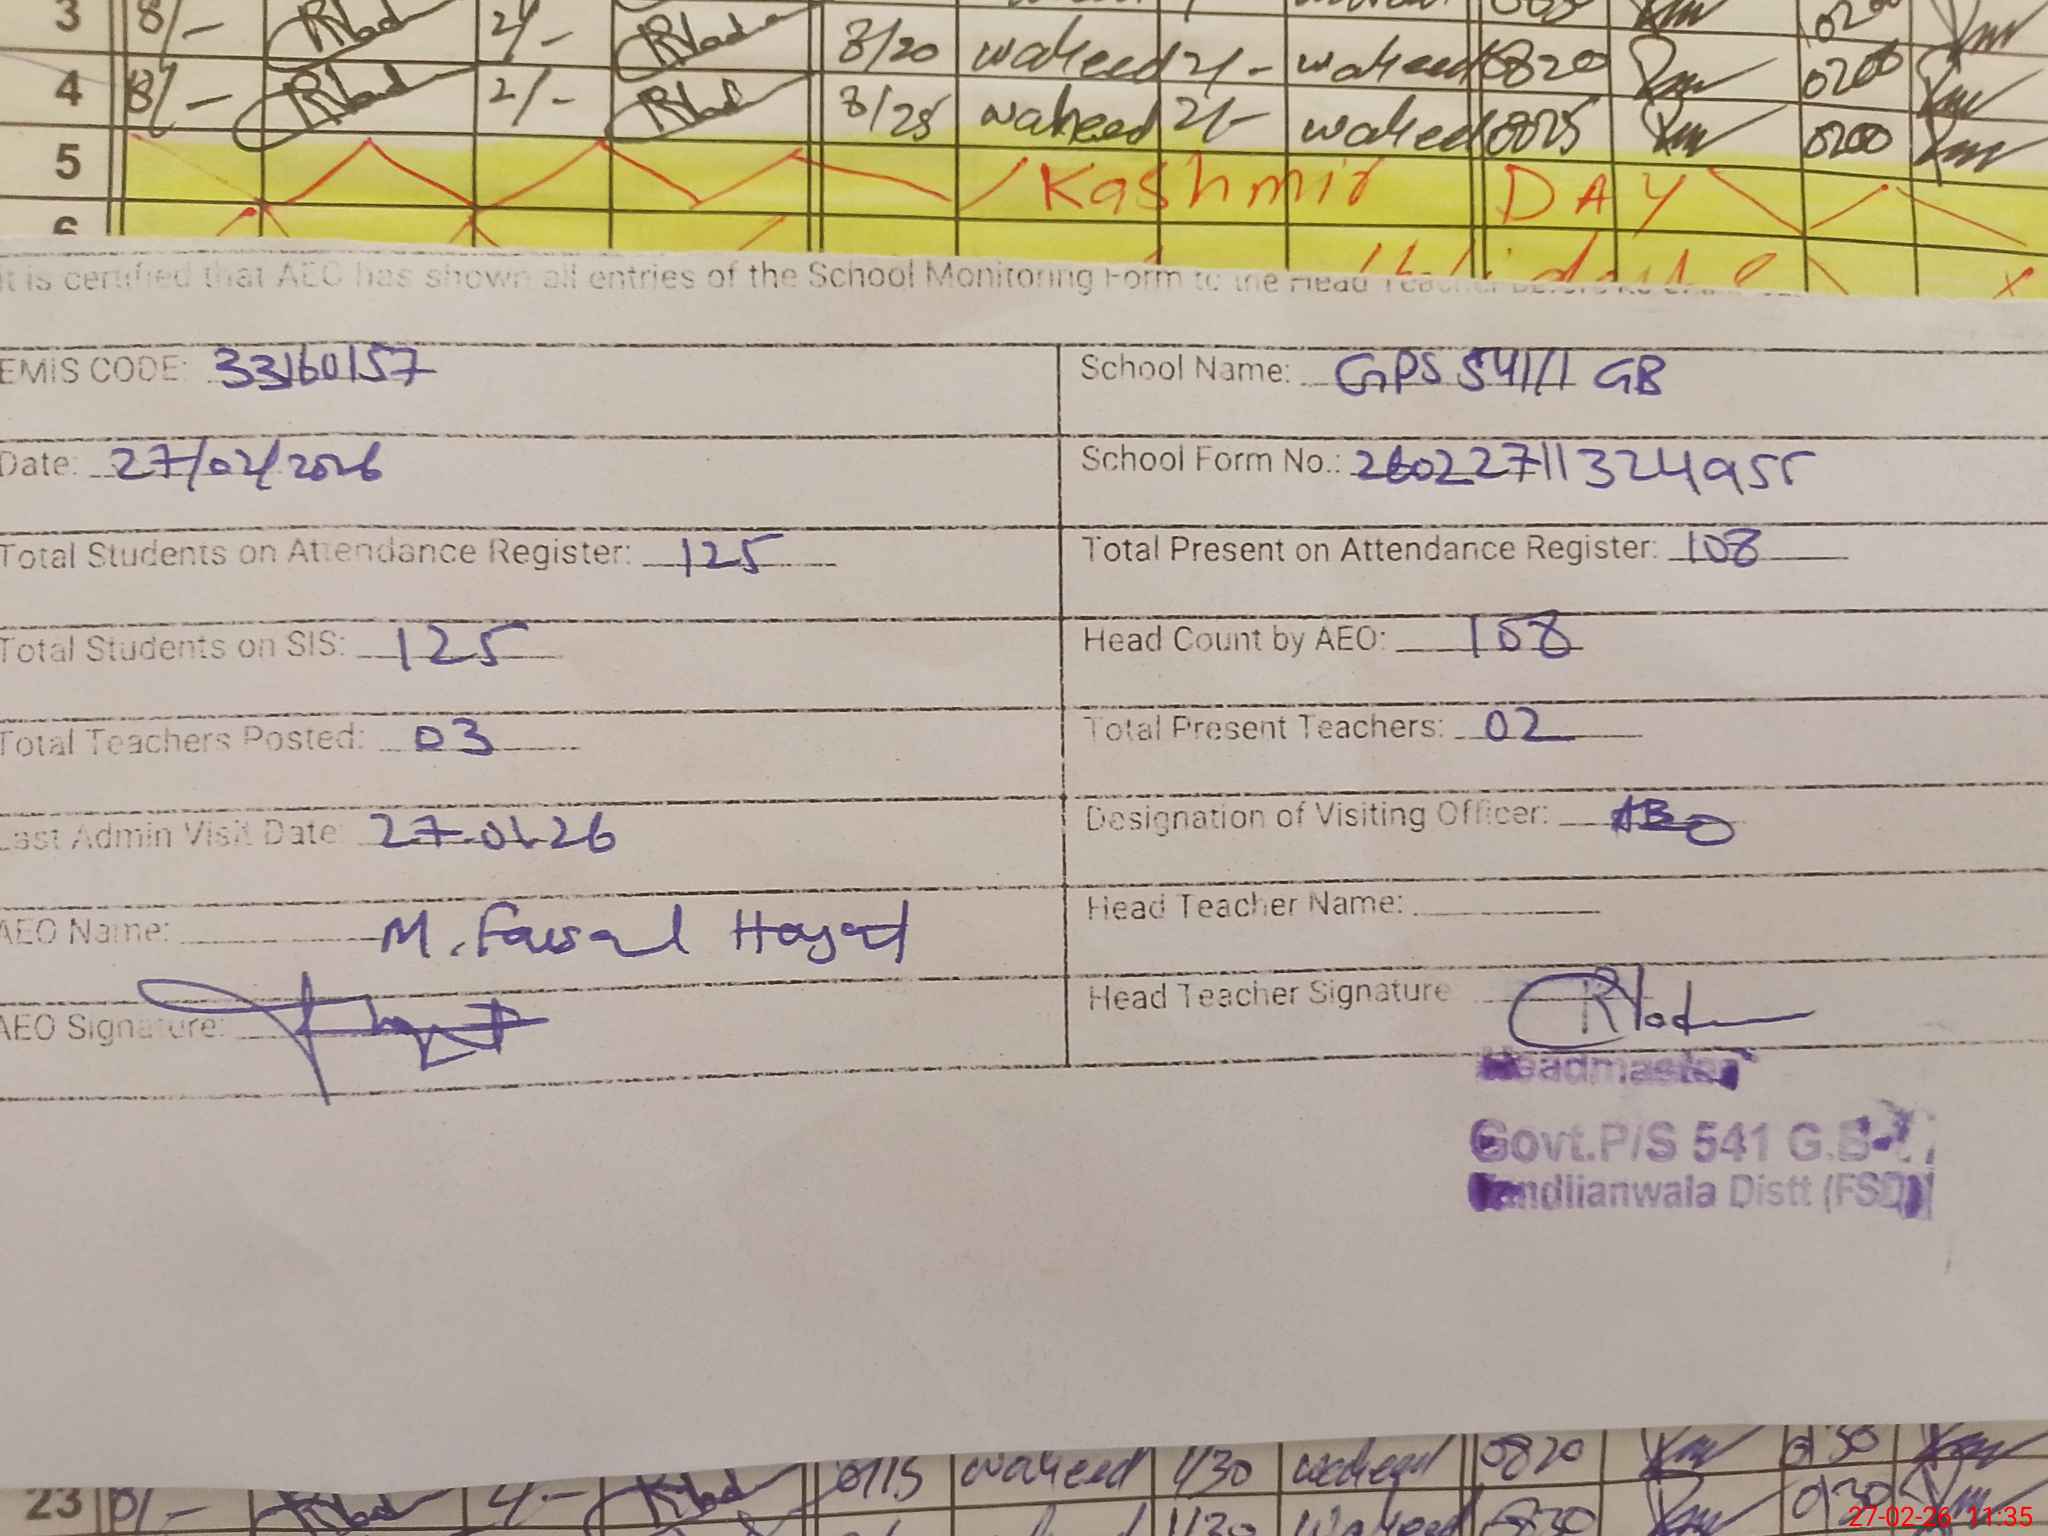 3 8/- 2/- 8/20 waheed 2/- waheed 0820 0200
4 8/- 2/- 8/25 waheed 2/- waheed 0825 0200
5 Kashmir DAY
6
It is certified that AEO has shown all entries of the School Monitoring Form to the Head Teacher
EMIS CODE: 33160157 School Name: GPS 541/1 GB
Date: 27/02/2026 School Form No.: 26022711324955
Total Students on Attendance Register: 125 Total Present on Attendance Register: 108
Total Students on SIS: 125 Head Count by AEO: 108
Total Teachers Posted: 03 Total Present Teachers: 02
Last Admin Visit Date: 27-01-26 Designation of Visiting Officer: AEO
AEO Name: M. Faisal Hayat Head Teacher Name:
AEO Signature: Head Teacher Signature
Headmaster
Govt.P/S 541 G.B-
Tandlianwala Distt (FSD)
waheed 1/30 waheed 0820 0130
23 8/- 0130
27-02-26 11:35